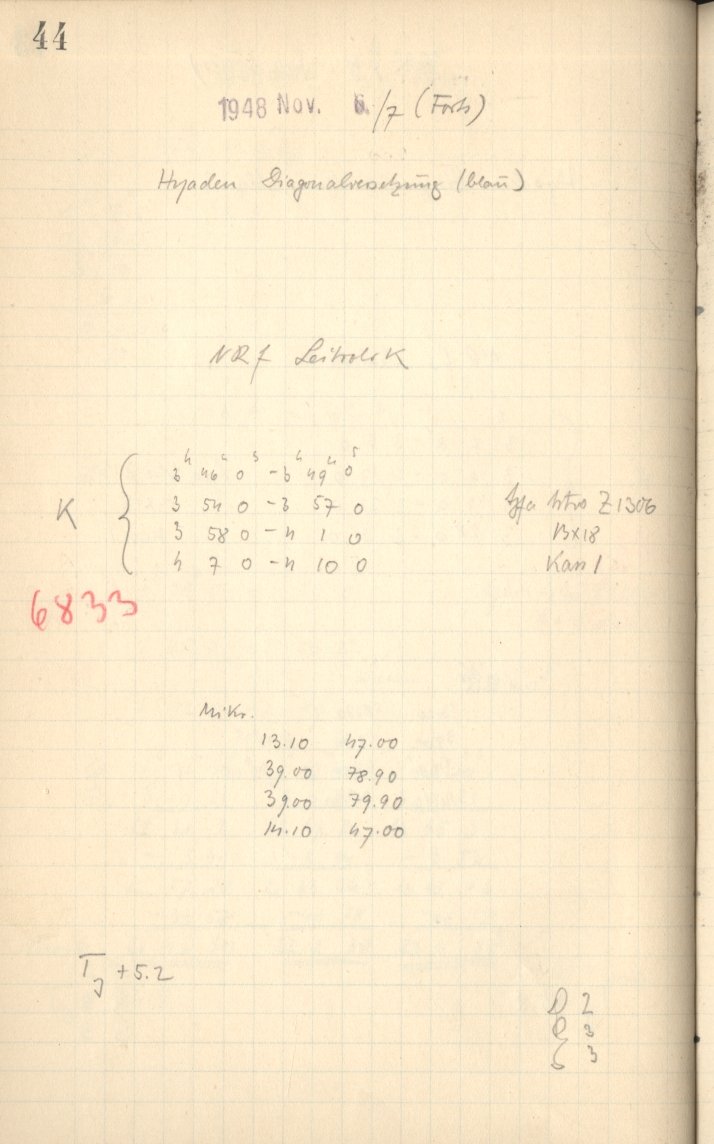 44
1948 Nov. 6./7 (Forts)
Hyaden Diagonalversetzung (blau)
NR 7
K
3ʰ 46ᵐ 0ˢ - 3ʰ 49ᵐ 0ˢ
3 54 0 - 3 57 0
3 58 0 - 4 1 0
4 7 0 - 4 10 0
Agfa Astro Z1306
13x18
Kass 1
6833
Mikr.
13.10 47.00
39.00 78.90
39.00 79.90
14.10 47.00
T_J +5.2
D 2
R 3
3